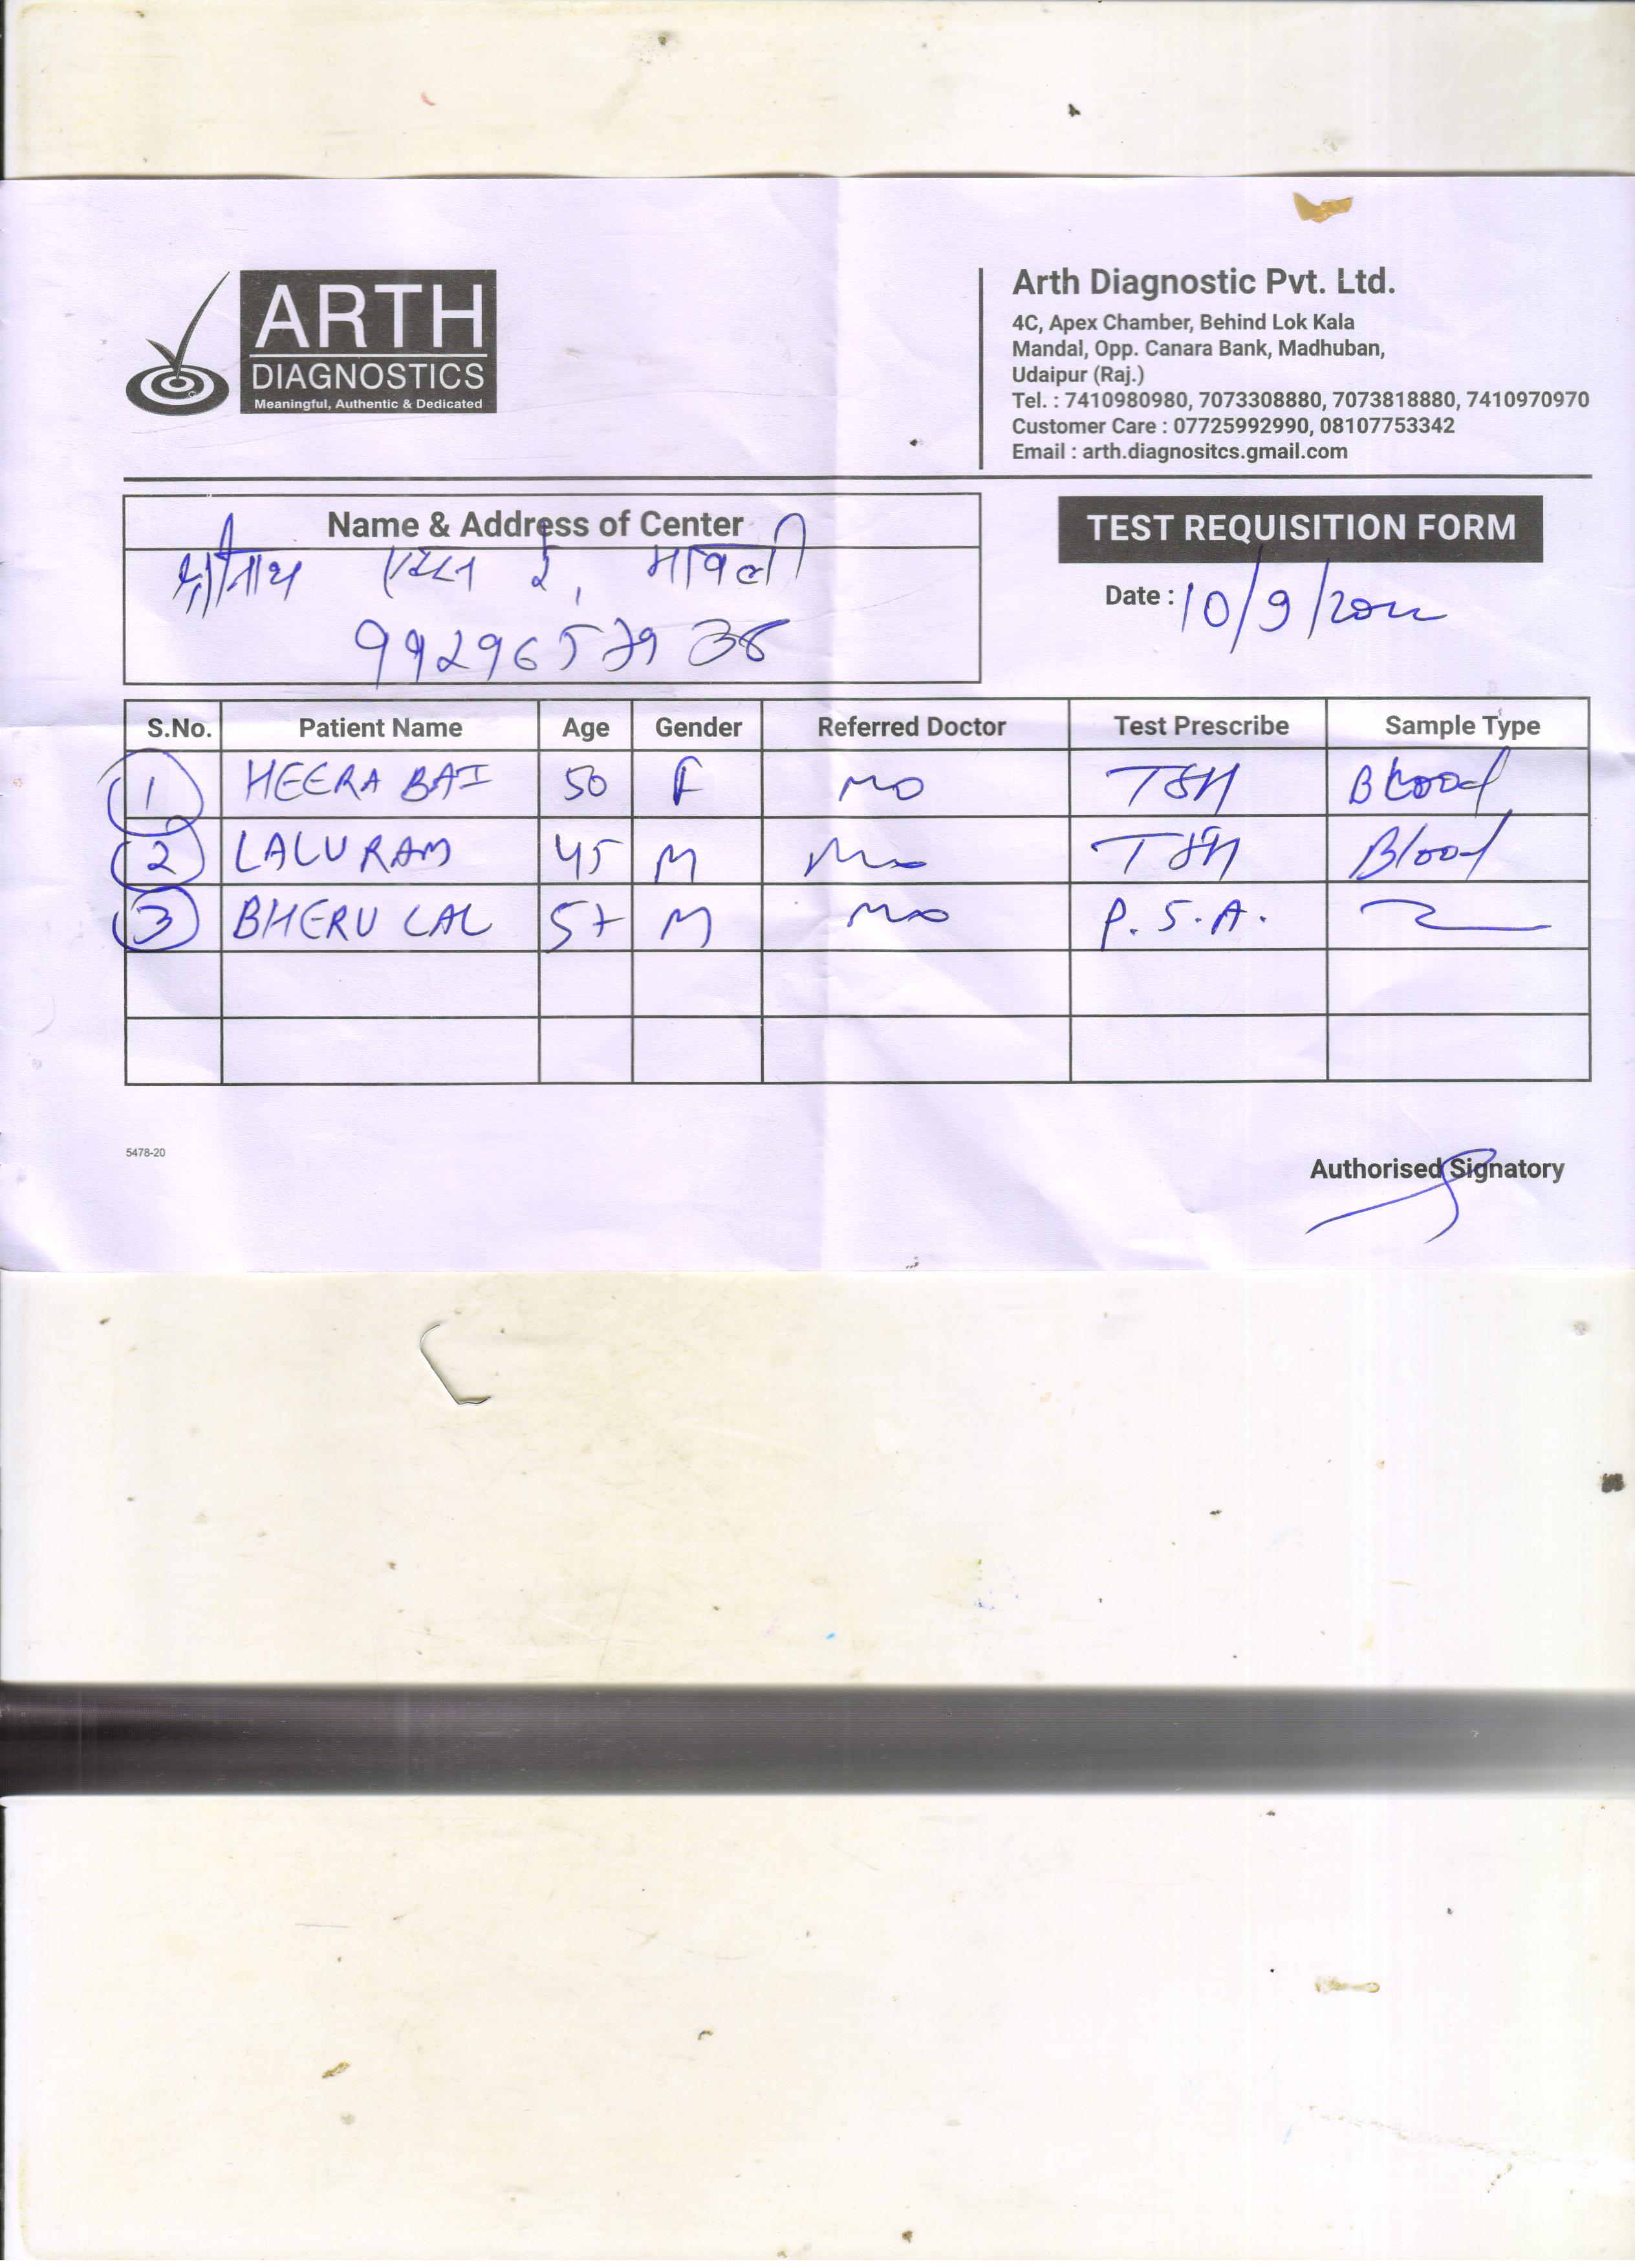 ARTH
DIAGNOSTICS
Meaningful, Authentic & Dedicated
Arth Diagnostic Pvt. Ltd.
4C, Apex Chamber, Behind Lok Kala
Mandal, Opp. Canara Bank, Madhuban,
Udaipur (Raj.)
Tel. : 7410980980, 7073308880, 7073818880, 7410970970
Customer Care : 07725992990, 08107753342
Email : arth.diagnositcs.gmail.com
Name & Address of Center
श्रीनाथ एक्स रे, मावली
TEST REQUISITION FORM
Date : 10/9/2022
S.No. Patient Name Age Gender Referred Doctor Test Prescribe Sample Type
1 HEERA BAI 50 F TSH Blood
2 LALU RAM 45 M TSH Blood
3 BHERU LAL 57 M P.S.A.
5478-20
Authorised Signatory